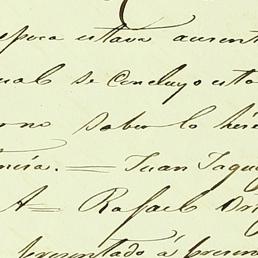 epoca estava ausent
ual se Concluyo esto
no Saber lo
ncia. = Juan Jaqu
A = Rafael Or
presentado á presen